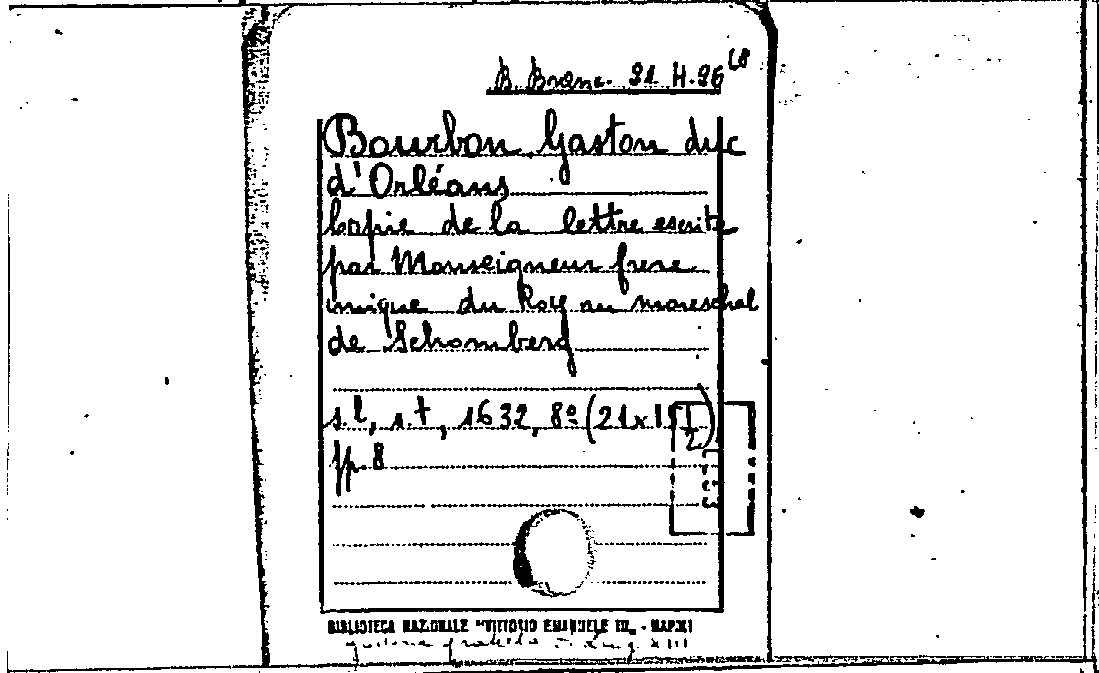 B. Branc. 21 H. 26 (8
Bourbon Gaston duc
d'Orléans
Copie de la lettre escrite
par Monseigneur frere
unique du Roy au mareschal
de Schomberg
s.l, s.t, 1632, 8º (21x15
pp. 8
BIBLIOTECA NAZIONALE "VITTORIO EMANUELE III" - NAPOLI
XIII